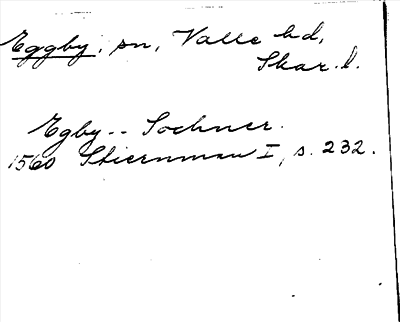 Eggby, sn, Valle hd,
Skar. l.
Egby -- Sochner.
1560 Stiernman I, s. 232.